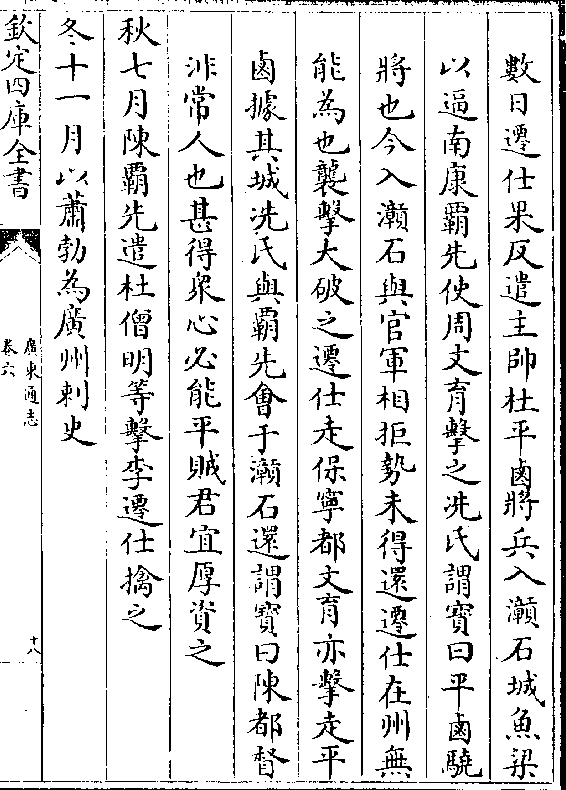 數日遷仕果反遣主帥杜平鹵將兵入灨石城魚梁
以逼南康霸先使周文育擊之冼氏謂寶曰平鹵驍
將也今入灨石與官軍相拒勢未得還遷仕在州無
能為也襲擊大破之遷仕走保寧都文育亦擊走平
鹵據其城冼氏與霸先會于灨石還謂寶曰陳都督
非常人也甚得衆心必能平賊君宜厚資之
秋七月陳霸先遣杜僧明等擊李遷仕擒之
冬十一月以蕭勃為廣州刺史
欽定四庫全書
廣東通志
卷六
十八